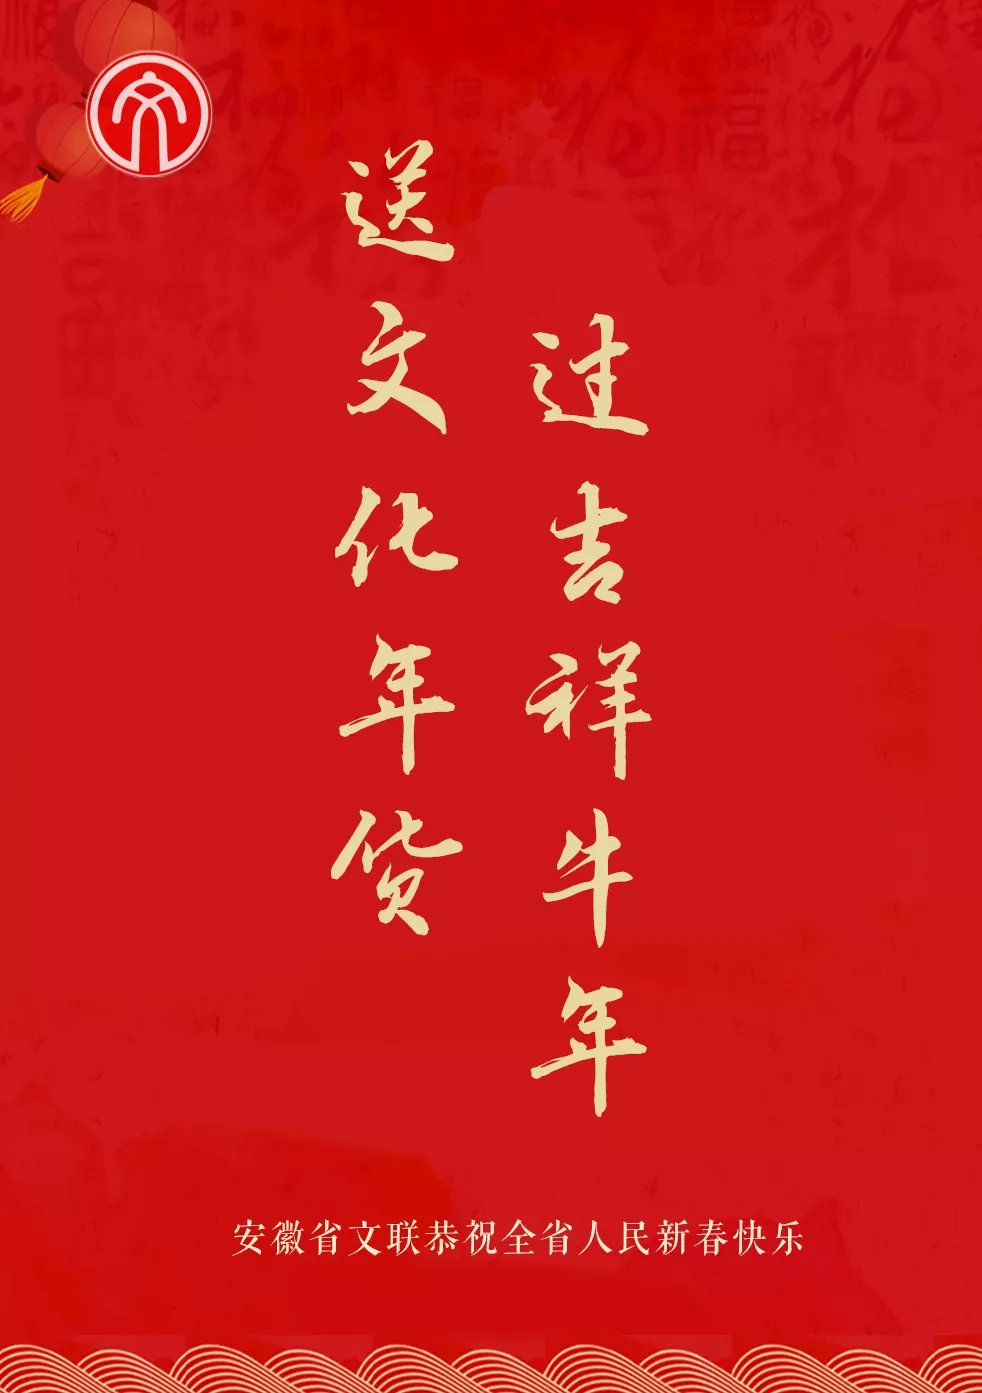 送文化年货
过吉祥牛年
安徽省文联恭祝全省人民新春快乐